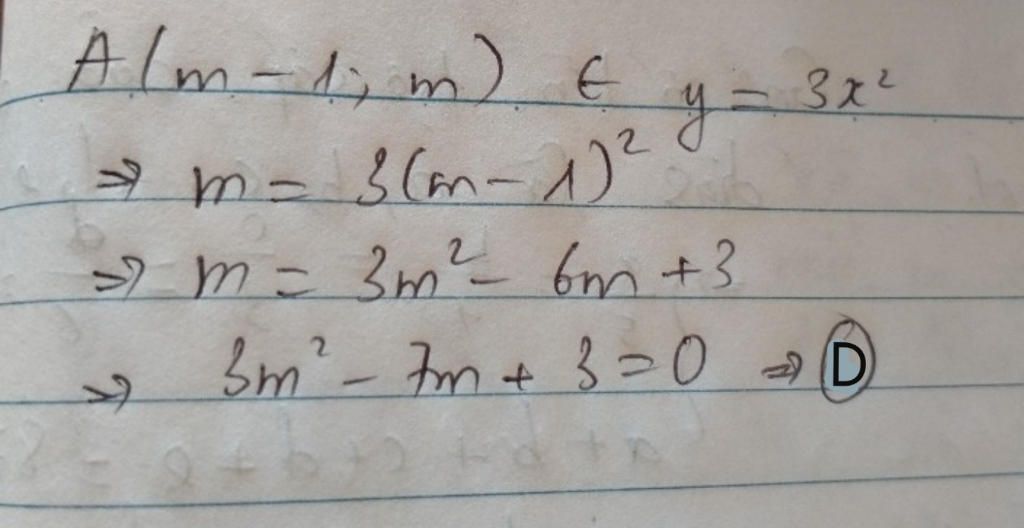 A(m - 1; m) ∈ y = 3x²
⇒ m = 3(m - 1)²
⇒ m = 3m² - 6m + 3
⇒ 3m² - 7m + 3 = 0 ⇒ D